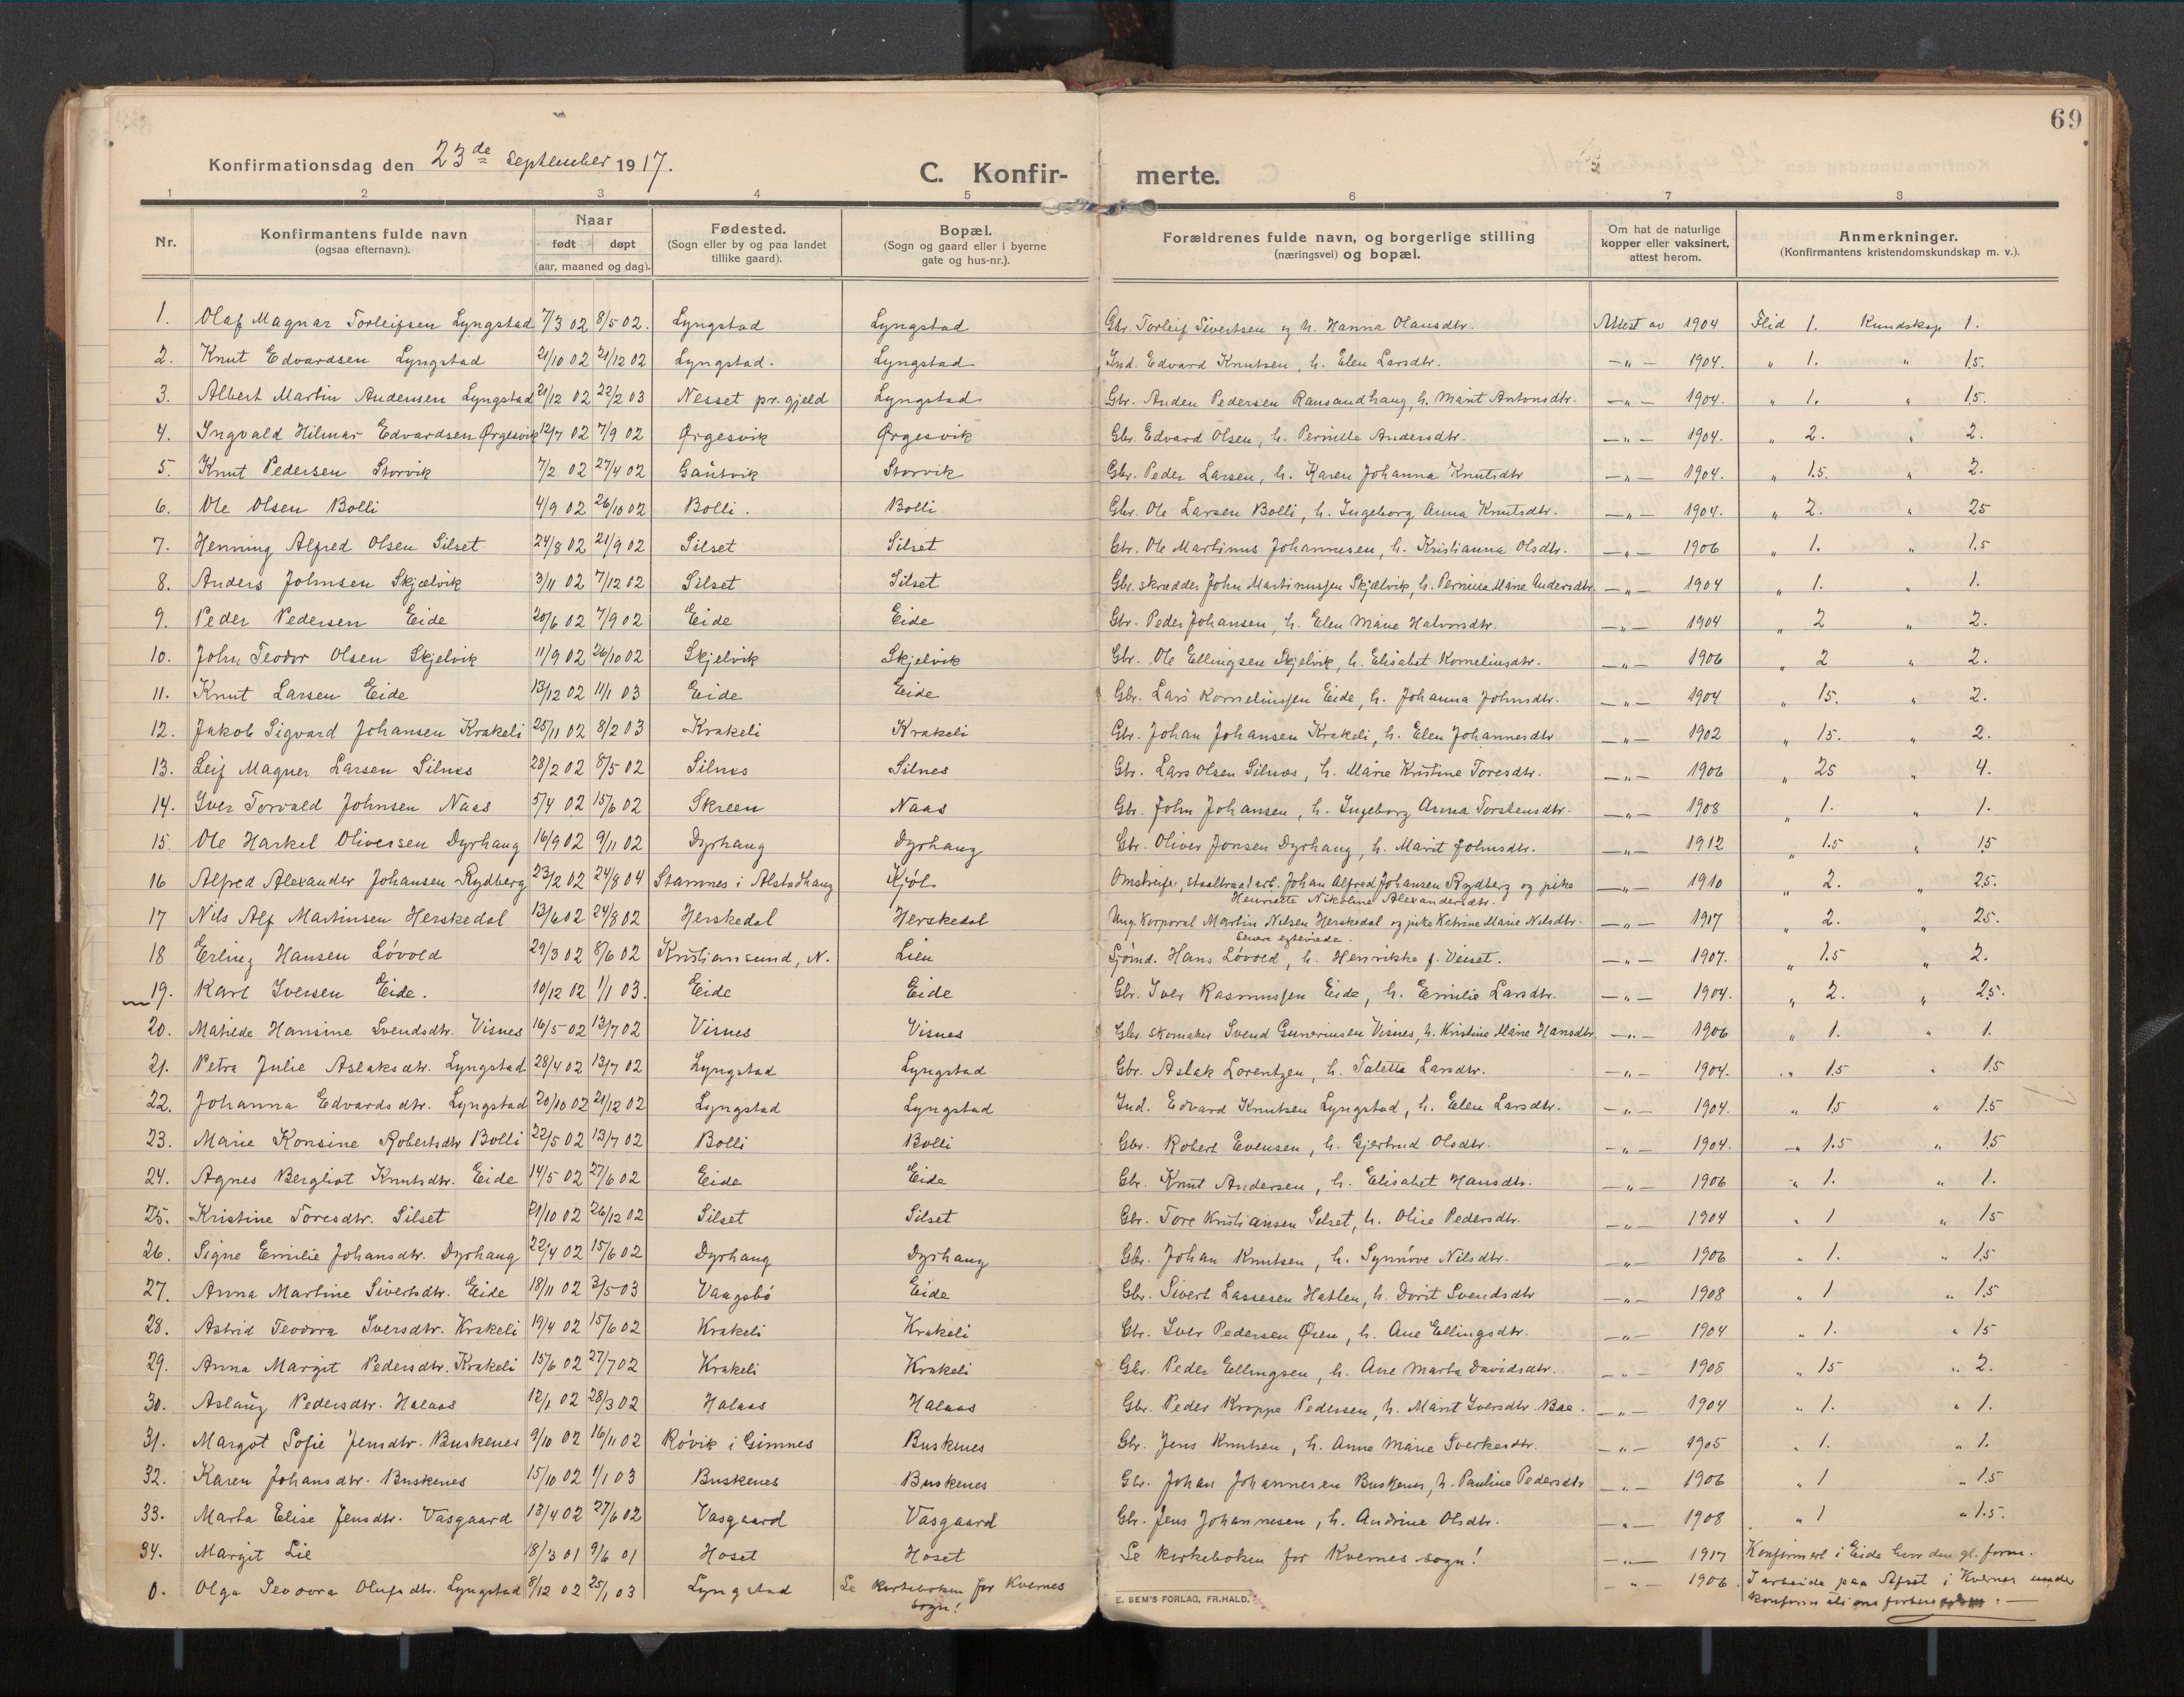 69
Konfirmationsdag den 23de September 1917.
C. Konfir-
merte.
1 2 3 4 5 6 7 8
Nr. Konfirmantens fulde navn (ogsaa efternavn). Naar født døpt (aar, maaned og dag). Fødested. (Sogn eller by og paa landet tillike gaard). Bopæl. (Sogn og gaard eller i byerne gate og hus-nr.). Forældrenes fulde navn, og borgerlige stilling (næringsvei) og bopæl. Om hat de naturlige kopper eller vaksinert, attest herom. Anmerkninger. (Konfirmantens kristendomskundskap m. v.).
1. Olaf Magnar Torleifsen Lyngstad 7/3 02 8/5 02. Lyngstad Lyngstad Gbr. Torleif Sivertsen og h. Hanna Olausdtr. Attest av 1904 Flid 1. Kundskap 1.
2. Knut Edvardsen Lyngstad 21/10 02 21/12 02 Lyngstad. Lyngstad Ind. Edvard Knutsen, h. Elen Larsdtr. —„— 1904. „ 1. „ 1.5.
3. Albert Martin Andensen Lyngstad 21/12 02 22/2 03 Nesset pr.gjeld Lyngstad Gbr. Anden Pedersen Ransandhaug, h. Marit Antonsdtr. —„— 1904. „ 1. „ 1.5.
4. Ingvald Hilmar Edvardsen Ørgesvik 12/7 02 7/9 02 Ørgesvik Ørgesvik Gbr. Edvard Olsen, h. Pernille Andersdtr. —„— 1904. „ 2. „ 2.
5. Knut Pedersen Storvik 7/2 02 27/4 02 Gautvik Storvik Gbr. Peder Larsen, h. Karen Johanna Knutsdtr —„— 1904. „ 1.5. „ 2.
6. Ole Olsen Bolli 4/9 02 26/10 02 Bolli. Bolli Gbr. Ole Larsen Bolli, h. Ingeborg Anna Knutsdtr. —„— 1904. „ 2. „ 25
7. Henning Alfred Olsen Silset 24/8 02 21/9 02 Silset Silset Gbr. Ole Martinus Johannesen, h. Kristianna Olsdtr. —„— 1906 „ 1. „ 1.5
8. Anders Johnsen Skjælvik 3/11 02 7/12 02 Silset Silset Gbr. skrædder John Martinussen Skjælvik, h. Pernille Marie Andersdtr. —„— 1904 „ 1. „ 1.
9. Peder Pedersen Eide 20/6 02 7/9 02 Eide Eide Gbr. Peder Johansen, h. Elen Marie Halvorsdtr. —„— 1904 „ 2 „ 2.
10. John Teodor Olsen Skjelvik 11/9 02 26/10 02 Skjelvik Skjelvik Gbr. Ole Ellingsen Skjelvik, h. Elisabet Korneliusdtr. —„— 1906 „ 2 „ 2.
11. Knut Larsen Eide 13/12 02 11/1 03 Eide Eide Gbr. Lars Korneliussen Eide, h. Johanna Johnsdtr. —„— 1904 „ 15. „ 2.
12. Jakob Sigvard Johansen Krakeli 25/11 02 8/2 03 Krakeli Krakeli Gbr. Johan Johansen Krakeli, h. Elen Johannesdtr —„— 1902 „ 15. „ 2.
13. Leif Magner Larsen Silnes 28/2 02 8/5 02 Silnes Silnes Gbr. Lars Olsen Silnes, h. Marie Kristine Toresdtr. —„— 1906 „ 25 „ 4.
14. Iver Torvald Johnsen Naas 5/4 02 15/6 02 Skreen Naas Gbr. John Johansen, h. Ingeborg Anna Torstensdtr. —„— 1908 „ 1. „ 1.
15. Ole Harkel Oliversen Dyrhaug 16/9 02 9/11 02 Dyrhaug Dyrhaug Gbr. Oliver Jonsen Dyrhaug, h. Marit Johnsdtr. —„— 1912 „ 1.5 „ 15
16 Alfred Alexander Johansen Rydberg 23/2 02 24/8 04 Stamnes i Alstadhaug Kjøl Omstreifer, staaltraadarb. Johan Alfred Johansen Rydberg og pike —„— 1910 „ 2. „ 2.5.
Henriette Nikoline Alexandersdtr.
17 Nils Alf Martinsen Herskedal 13/6 02 24/8 02 Herskedal Herskedal Ung. Korporal Martin Nilsen Herskedal og pike Katrine Marie Nilsdtr. —„— 1917 „ 2. „ 25.
Senere egteviede.
18 Erling Hansen Løvold 29/3 02 8/6 02 Kristiansund, N. Lien Sjømd. Hans Løvold, h. Henrikke f. Veiset. —„— 1907. „ 1.5 „ 2.
19. Karl Iversen Eide. 10/12 02 1/1 03. Eide Eide Gbr. Iver Rasmussen Eide, h. Emilie Larsdtr. —„— 1904. „ 2. „ 25.
20. Matilde Hansine Svendsdtr. Visnes 16/5 02 13/7 02 Visnes Visnes Gbr. skomaker Svend Gunerinsen Visnes, h. Kristine Marie Hansdtr. —„— 1906 „ 1. „ 1.
21. Petra Julie Aslaksdtr. Lyngstad 28/4 02 13/7 02 Lyngstad Lyngstad Gbr. Aslak Lorentzen, h. Talette Larsdtr. —„— 1904. „ 1.5 „ 1.5
22. Johanna Edvardsdtr. Lyngstad 20/10 02 21/12 02 Lyngstad Lyngstad Ind. Edvard Knutsen Lyngstad, h. Elen Larsdtr. —„— 1904. „ 15 „ 1.5
23. Marie Konsine Robertsdtr Bolli 22/5 02 13/7 02 Bolli Bolli Gbr. Robert Evensen, h. Gjertrud Olsdtr. —„— 1904. „ 1.5 „ 1.5
24. Agnes Bergliot Knutsdtr. Eide 14/5 02 27/6 02 Eide Eide Gbr. Knut Andersen, h. Elisabet Hansdtr. —„— 1906 „ 1. „ 1.
25. Kristine Toresdtr. Silset 21/10 02 26/12 02 Silset Silset Gbr. Tore Kristiansen Silset, h. Olise Pedersdtr. —„— 1904 „ 1 „ 15
26. Signe Emilie Johansdtr. Dyrhaug 22/4 02 15/6 02 Dyrhaug Dyrhaug Gbr. Johan Knutsen, h. Synnøve Nilsdtr. —„— 1906 „ 1. „ 1.5
27. Anna Martine Sivertsdtr. Eide 18/11 02 3/5 03 Vaagsbø Eide Gbr. Sivert Lassesen Hatlen, h. Dorit Svendsdtr —„— 1908 „ 1 „ 1.5
28. Astrid Teodora Iversdtr. Krakeli 19/4 02 15/6 02 Krakeli Krakeli Gbr. Iver Pedersen Øien, h. Ane Ellingsdtr. —„— 1904 „ 1. „ 15
29. Anna Margit Pedersdtr. Krakeli 15/6 02 27/7 02 Krakeli Krakeli Gbr. Peder Ellingsen, h. Ane Marta Davidsdtr. —„— 1905 „ 15 „ 2.
30. Aslaug Pedersdtr. Halaas 12/1 02 28/3 02 Halaas Halaas Gbr. Peder Kroppe Pedersen, h. Marit Iversdtr. Bae. —„— 1904 „ 1. „ 1.
31. Margot Sofie Jensdtr. Buskenes 9/10 02 16/11 02 Røvik i Gimnes Buskenes Gbr. Jens Knutsen, h. Anne Marie Sverkesdtr. —„— 1905 „ 1. „ 1.
32. Karen Johansdtr. Buskenes 15/10 02 1/1 03 Buskenes Buskenes Gbr. Johan Johannesen Buskenes, h. Pauline Pedersdtr —„— 1906 „ 1 „ 1.5
33. Marta Elise Jensdtr. Vasgaard 13/4 02 27/6 02 Vasgaard Vasgaard Gbr. Jens Johannesen, h. Andrine Olsdtr. —„— 1908 „ 1 „ 1.5.
34. Margit Lie 18/3 01 9/6 01 Hoset Hoset Se kirkeboken for Kvernes sogn! —„— 1917 Konfirmert i Eide hvor den gl. form.
0. Olga Teodora Olufsdtr. Lyngstad 8/12 02 25/1 03 Lyngstad Se kirkeboken for Kvernes —„— 1906. I arbeide paa i Kvernes under
sogn! konfirmations
E. SEM'S FORLAG, FR.HALD.